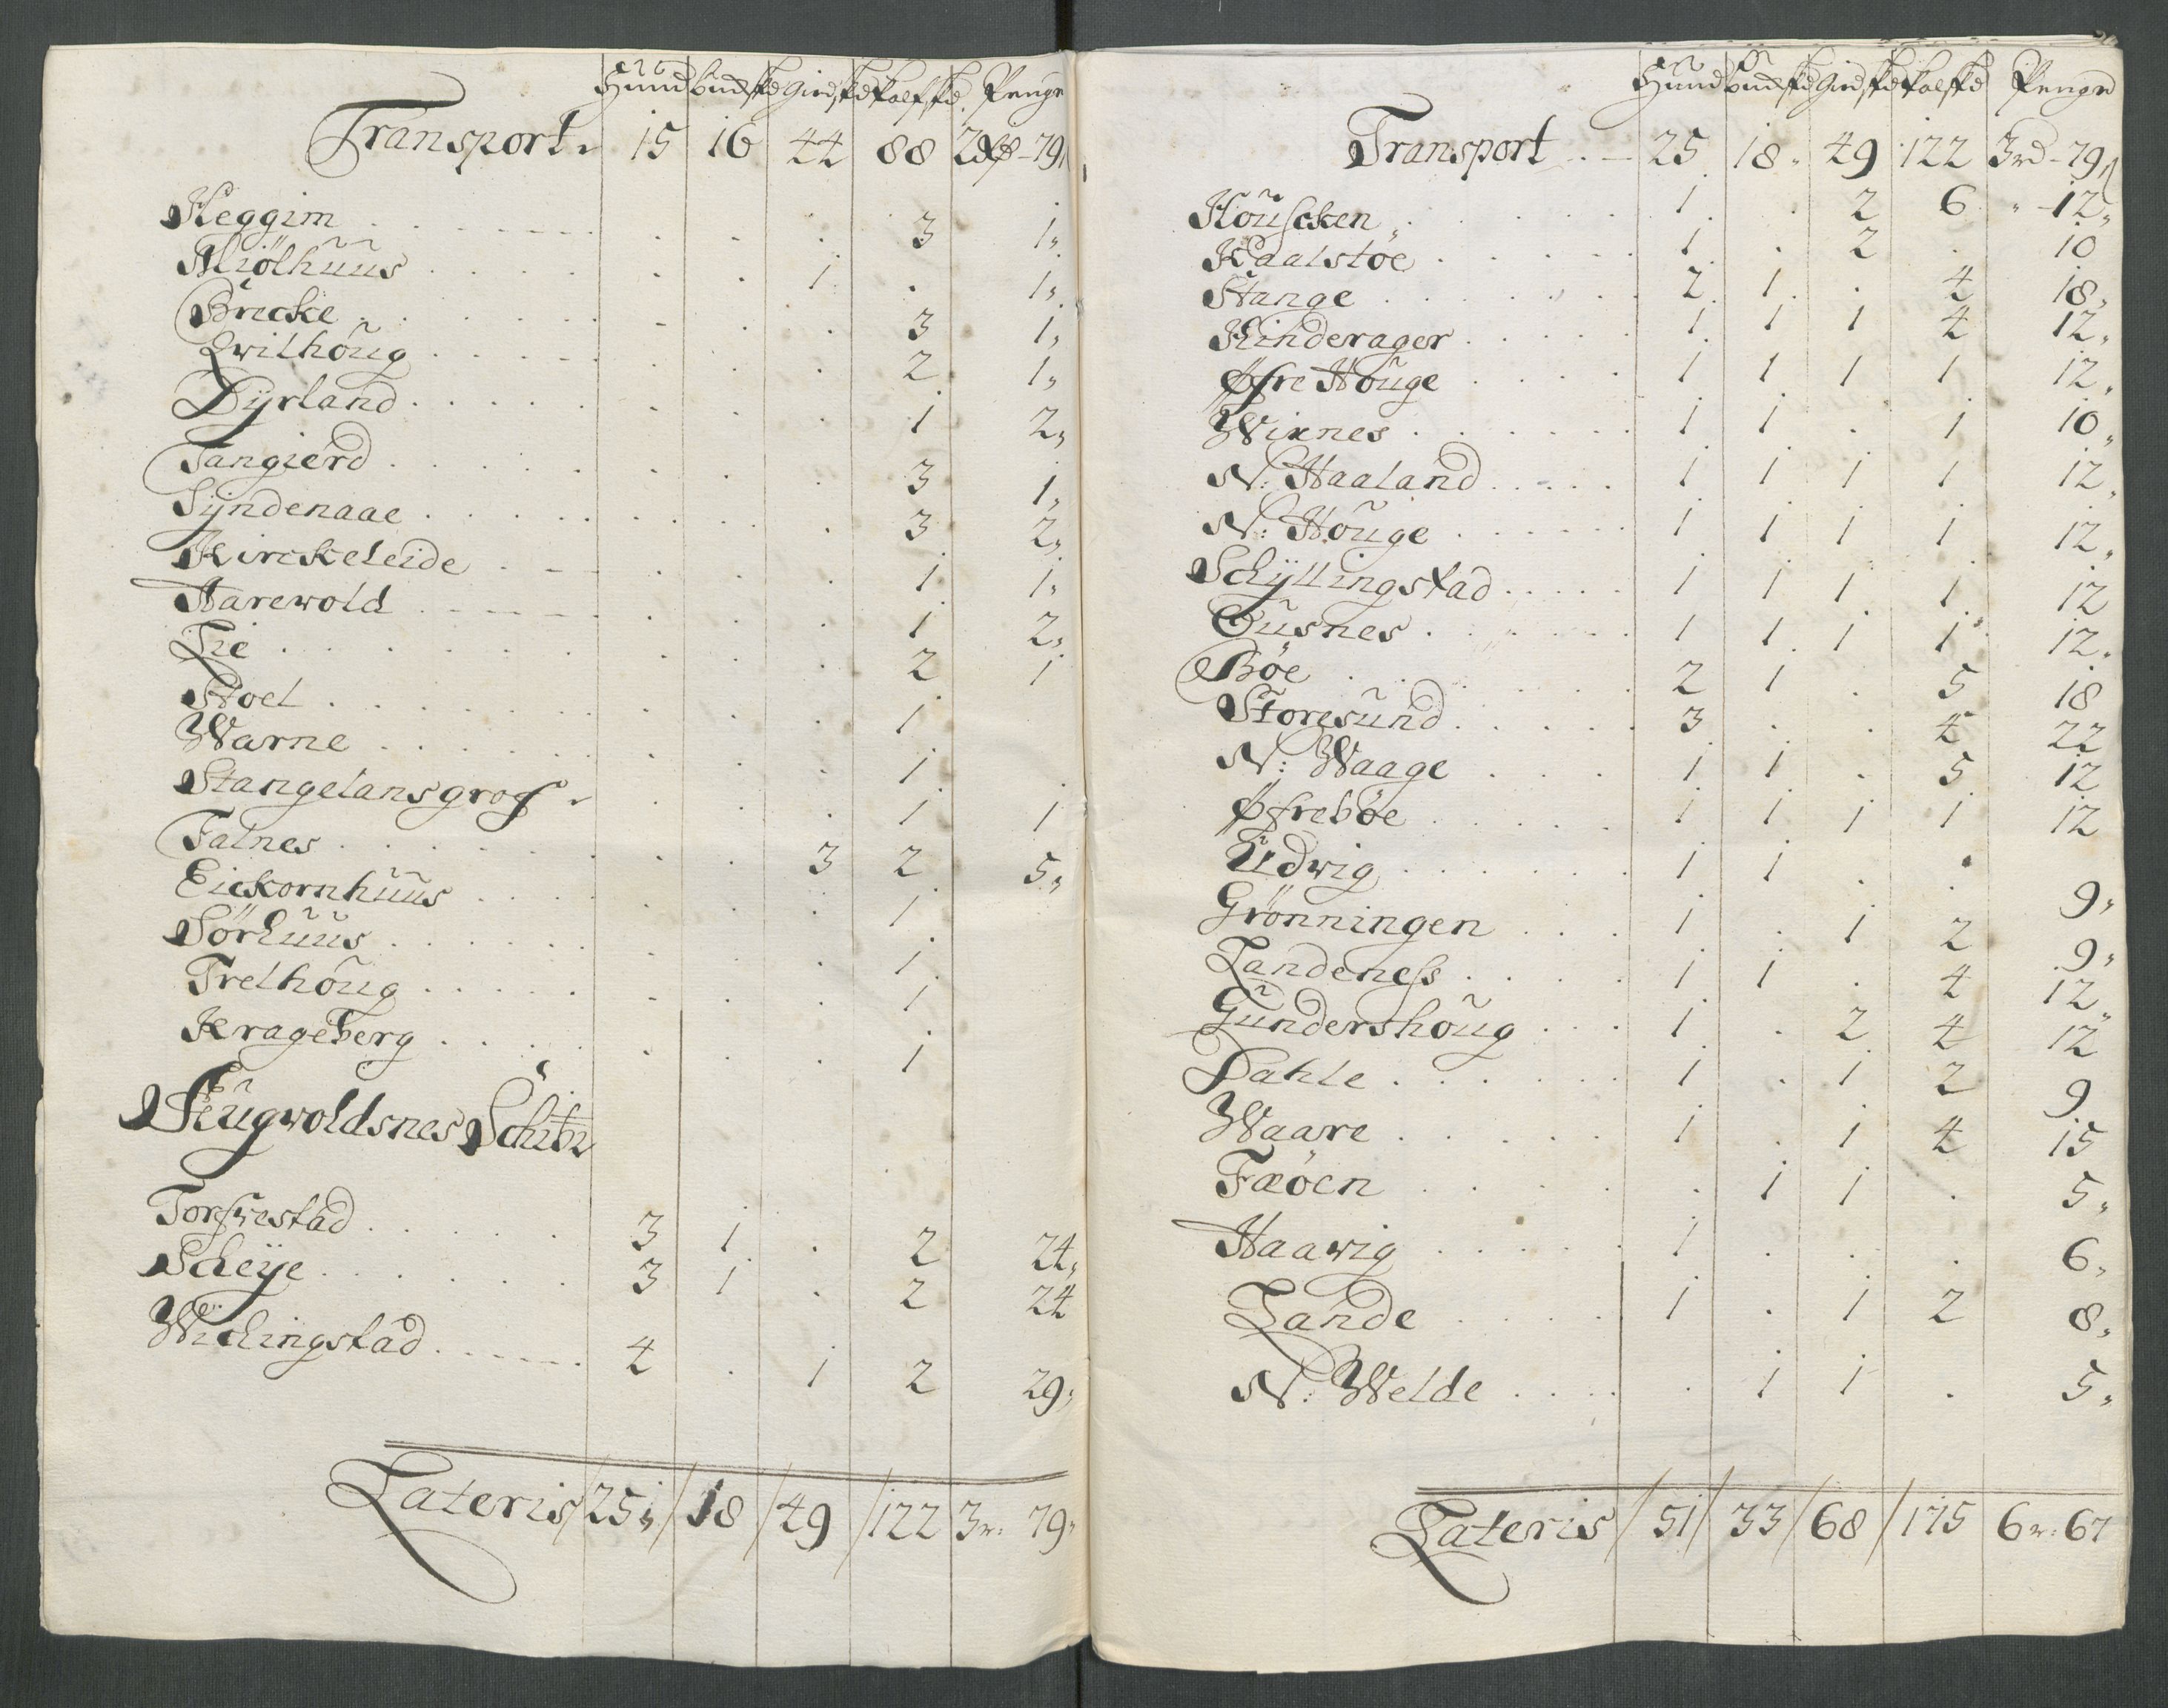 Hund Budskd Giedskd Kalfskd Penge
Transport 15 16 44 88 2rd - 79
Heggim 3 1
Miölhuus 1 1
Brecke 3 1
Qvilhoug 2 1
Dyrland 1 2
Tangierd 3 1
Syndenaae 3 2
Kirckeleide 1 1
Aarewold 1 2
Lie 2 1
Stoel 1
Warne 1
Stangelansgrof 1 1
Falnes 3 2 5
Eickornhuus 1
Sörhuus 1
Trelhoug 1
Krageberg 1
Augwoldsnes Schibr
Torfvestad 3 1 2 24
Scheije 3 1 2 24
Wichingstad 4 1 2 29
Lateris 25 18 49 122 3r: 79
Hund Budskd Giedskd Kalfskd Penge
Transport 25 18 49 122 3rd - 79
Houscken 1 2 6 12
Kaalstöe 1 2 10
Stange 2 1 4 18
Kinderager 1 1 1 4 12
Øfre Houge 1 1 1 1 12
Wixnes 1 1 1 10
N: Haaland 1 1 1 1 12
N: Houge 1 1 1 1 12
Schyllingstad 1 1 1 1 12
Gusnes 1 1 1 1 12
Böe 2 1 5 18
Storesund 3 4 22
N: Waage 1 1 5 12
Øfreböe 1 1 1 1 12
Udwig 1 1 9
Grönningen 1 1 2 9
Landeness 1 1 4 12
Gundershoug 1 2 4 12
Dahle 1 1 2 9
Waare 1 1 4 15
Fæöen 1 1 5
Haawig 1 6
Lande 1 1 2 8
N: Welde 1 1 5
Lateris 51 33 68 175 6r: 67